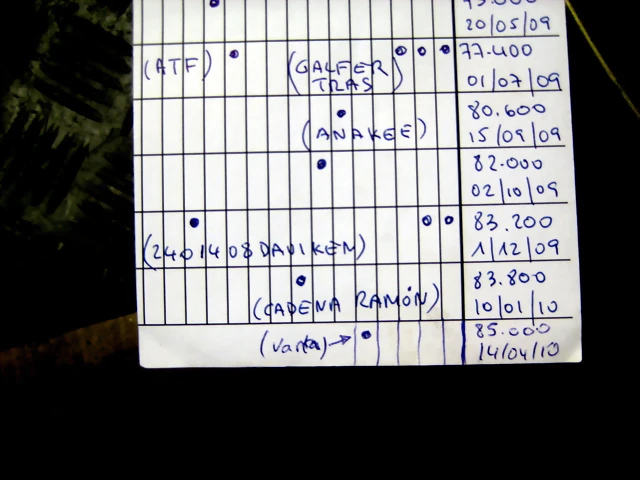 20/05/09
77.400
(ATF) (GALFER
TRAS)
01/07/09
80.600
(ANAKEE) 15/09/09
82.000
02/10/09
83.200
1/12/09
83.800
(CADENA RAMÓN) 10/01/10
85.000
(Varta)→ 14/04/10